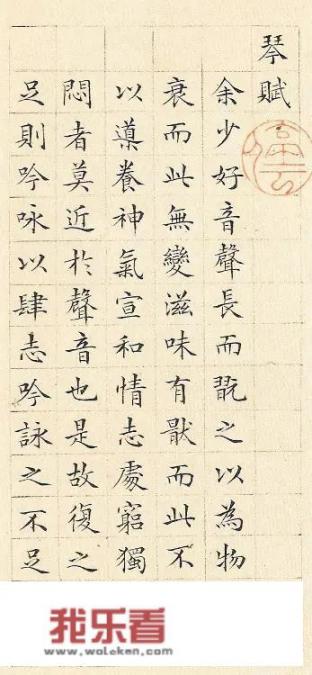 琴賦
余少好音聲長而翫之以為物
衰而此無變滋味有猒而此不
以導養神氣宣和情志處窮獨
悶者莫近於聲音也是故復之
足則吟咏以肆志吟詠之不足
我乐看
www.woleken.com